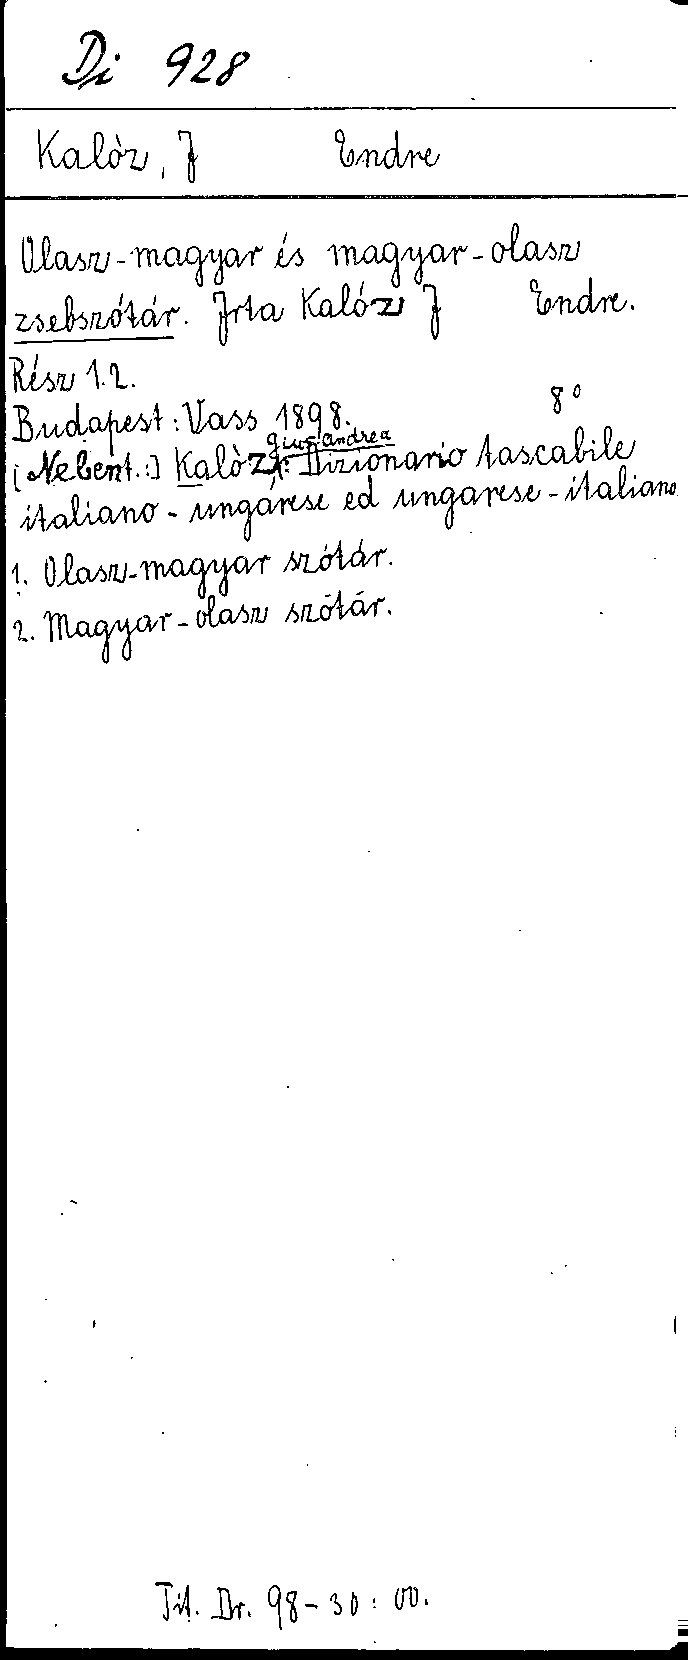 Di 928
Kalòz, J Endre
Olasz-magyar és magyar-olasz
zsebszótár. Jrta Kalóz J Endre.
Rész 1.2.
Budapest: Vass 1898. 8°
Andrea
[Nebent.:] Kalòz, Dizionario tascabile
italiano-ungárese ed ungarese-italiano
1. Olasz-magyar szótár.
2. Magyar-olasz szótár.
Tit. Dr. 98-30: 00.